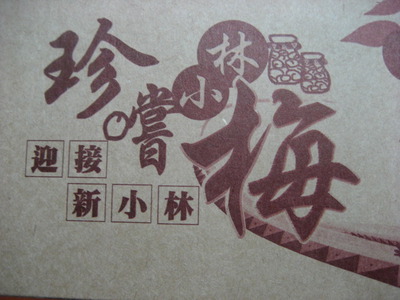 珍嚐小林梅
迎接
新小林